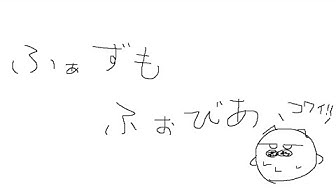 ふぁずも
ふぉびあ
、コワイ!!